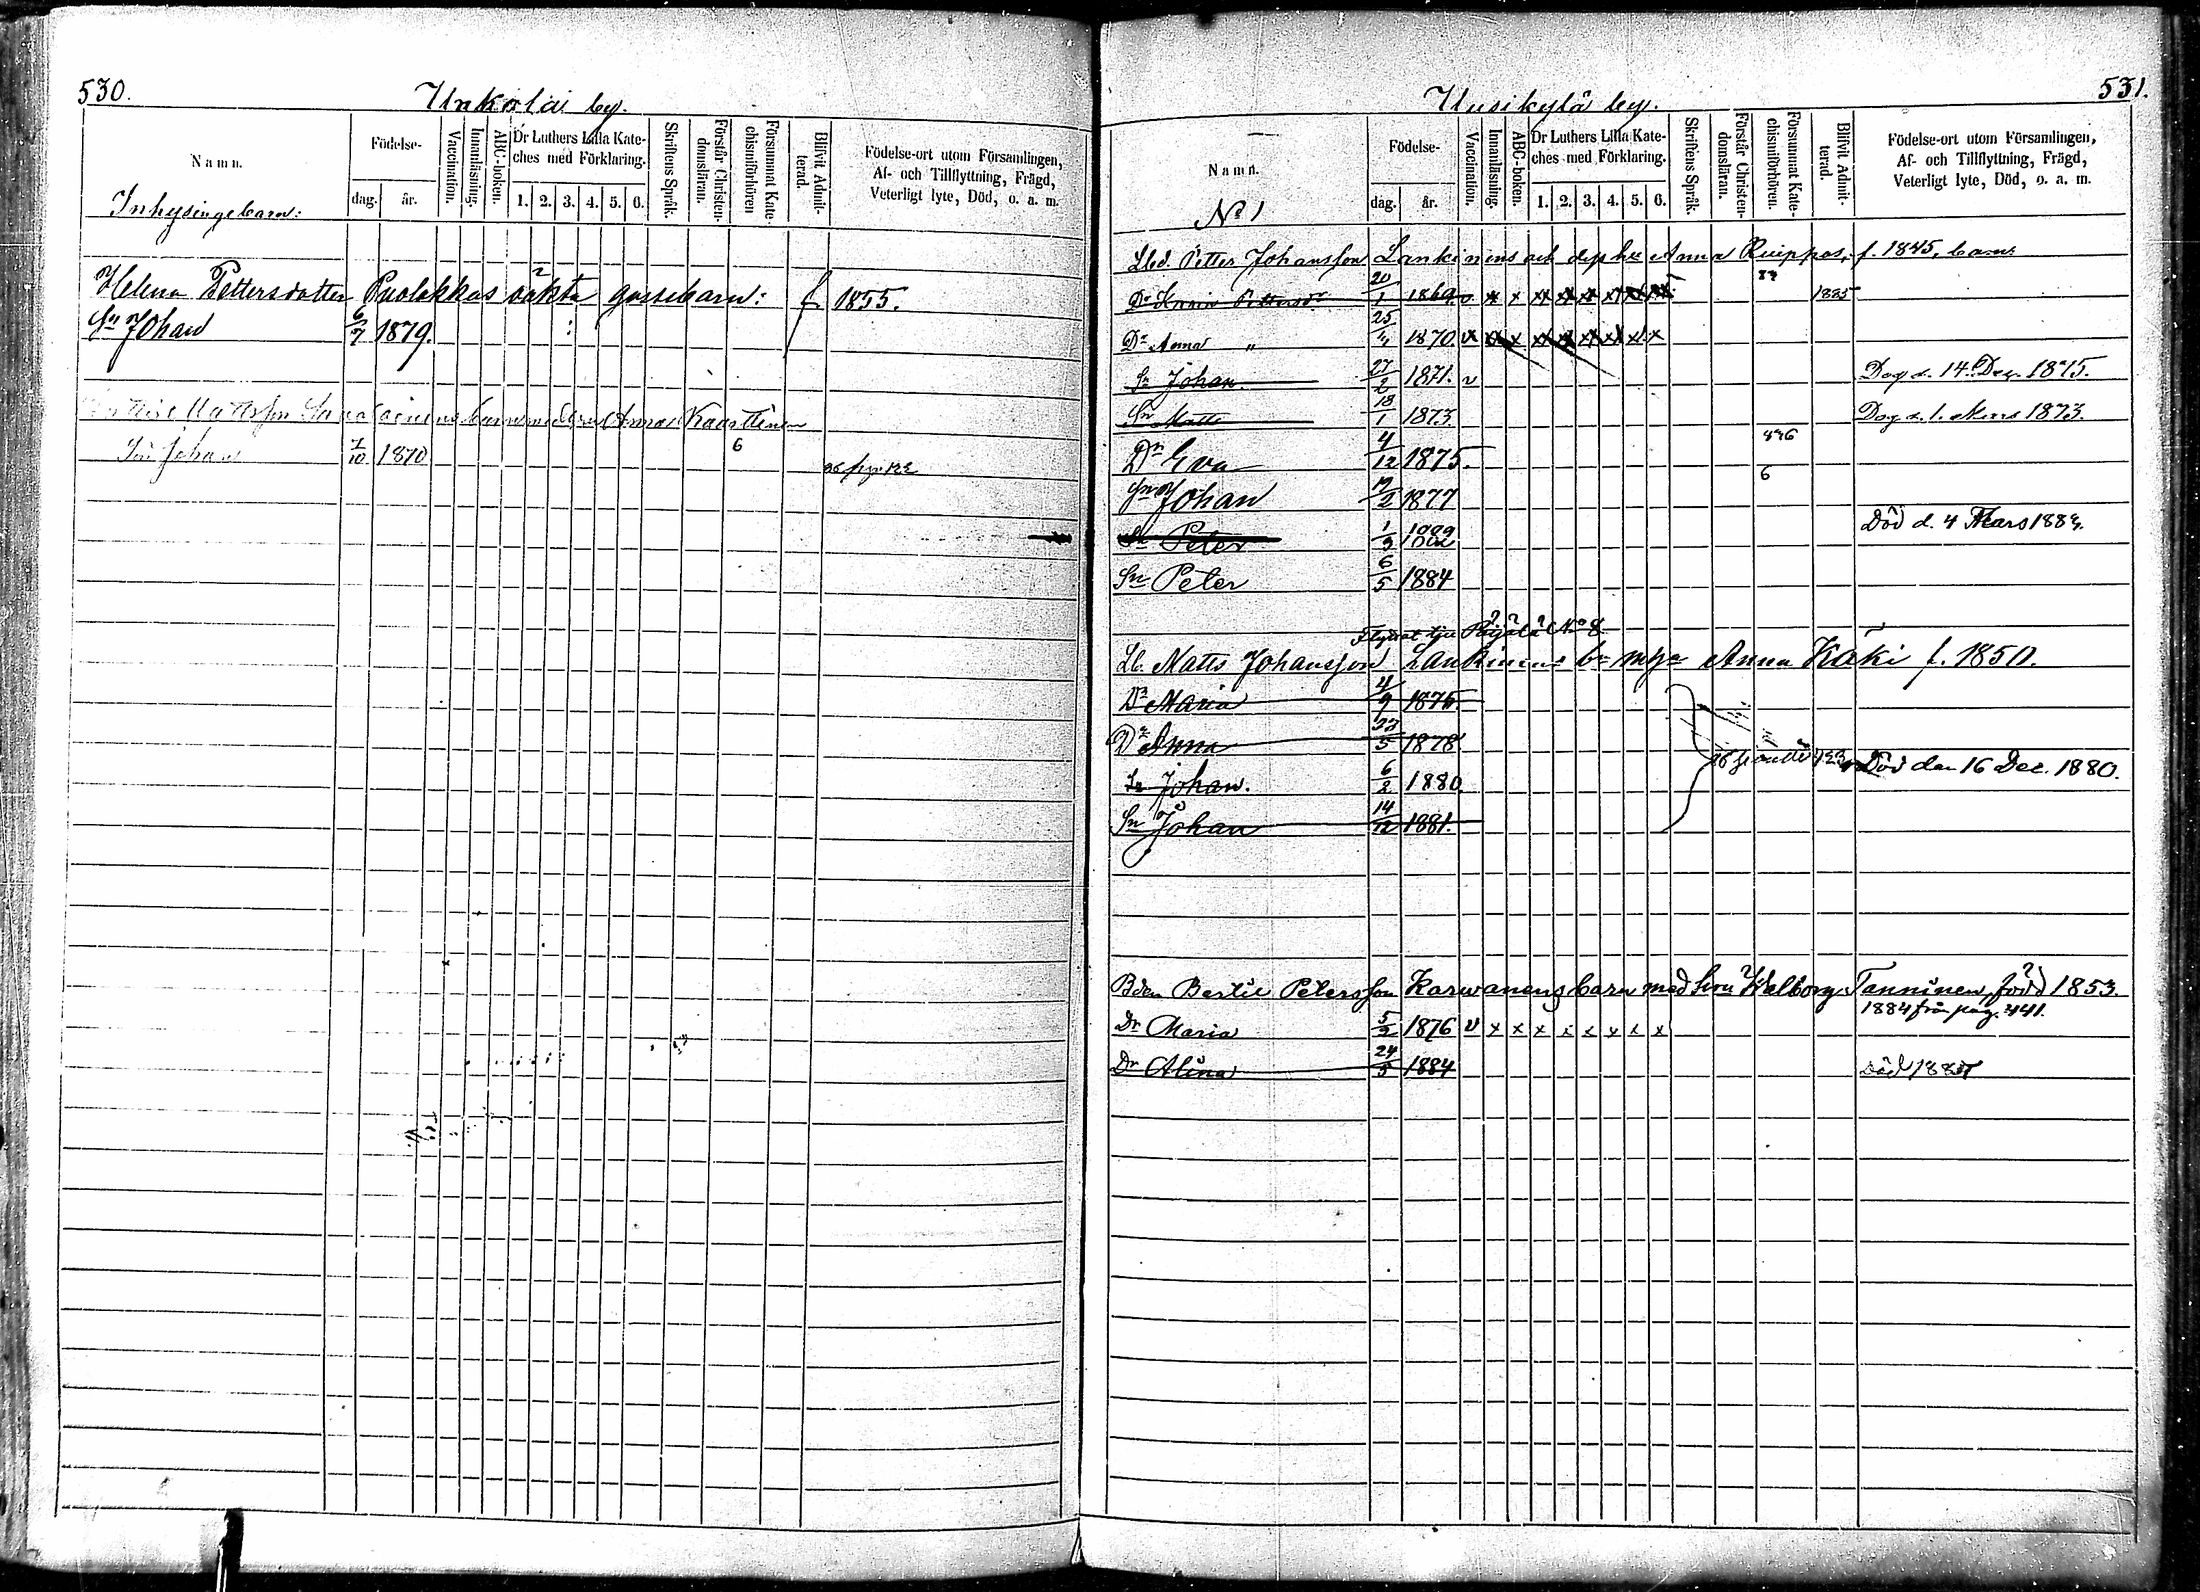 530.
Unkola by.
Namn.
Födelse-
dag.
år.
Vaccination.
Innanläsning.
ABC-boken.
Dr Luthers Lilla Kate-
ches med Förklaring.
1. 2. 3. 4. 5. 6.
Skriftens Språk.
Förstår Christen-
domsläran.
Försummat Kate-
chismiförhören
Blifvit Admit-
terad.
Födelse-ort utom Församlingen,
Af- och Tillflyttning, Frägd,
Veterligt lyte, Död, o. a. m.
Inhysingebarn:
Helena Pettersdotter Puolakkas oäkta gossebarn: f. 1855.
Sn Johan 6/7 1879.
Mattsson barn med Anna Kaarttinen
Sn Johan 7/10 1870 6
531.
Uusikylä by.
Namn.
Födelse-
dag.
år.
Vaccination.
Innanläsning.
ABC-boken.
Dr Luthers Lilla Kate-
ches med Förklaring.
1. 2. 3. 4. 5. 6.
Skriftens Språk.
Förstår Christen-
domsläran.
Försummat Kate-
chismiförhören.
Blifvit Admit-
terad.
Födelse-ort utom Församlingen,
Af- och Tillflyttning, Frägd,
Veterligt lyte, Död, o. a. m.
No 1
Lbd. Petter Johansson Lankinens och Anna f. 1845, barn:
Dr Karin Pettersdr 20/1 1869 v x x x x x x x x 1885
Dr Anna " 25/4 1870 v x x x x x x x x
Sn Johan 27/2 1871. v Dog d. 14 Dec. 1875.
Sn Matts 18/1 1873 Dog d. 1. Mars 1873.
Dr Eva 4/12 1875.
6
Sn Johan 17/2 1877
Sn Peter 1/9 1882 Död d. 4 Mars 1884.
Sn Peter 6/5 1884
Flyttat No 8
Lb. Matts Johansson Lankinens bn m hu Anna Käki f. 1850.
Dr Maria 4/9 1875.
Dr Anna 5 1878
Sn Johan. 6/2 1880 Död den 16 Dec. 1880.
Sn Johan 14/12 1881.
Bden Bertil Petersson Karwanens barn med hru Walborg Tanninen, född 1853.
1884 från pag. 441.
Dr Maria 5/2 1876 v x x x x x x x x
Dr Alina 24/5 1884